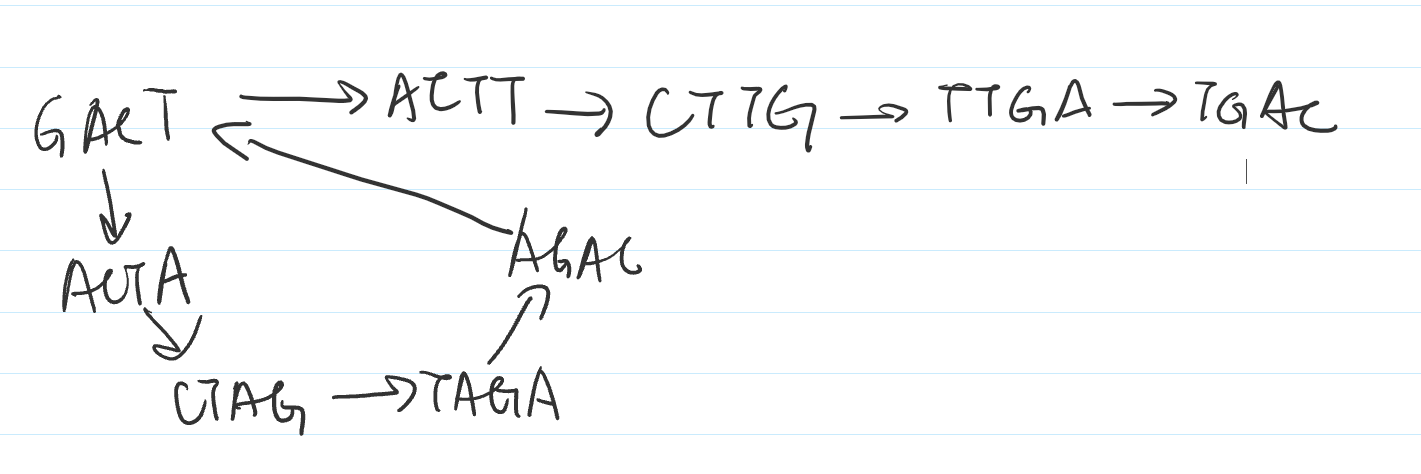 GACT → ACTT → CTTG → TTGA → TGAC
ACTA
AGAC
CTAG → TAGA